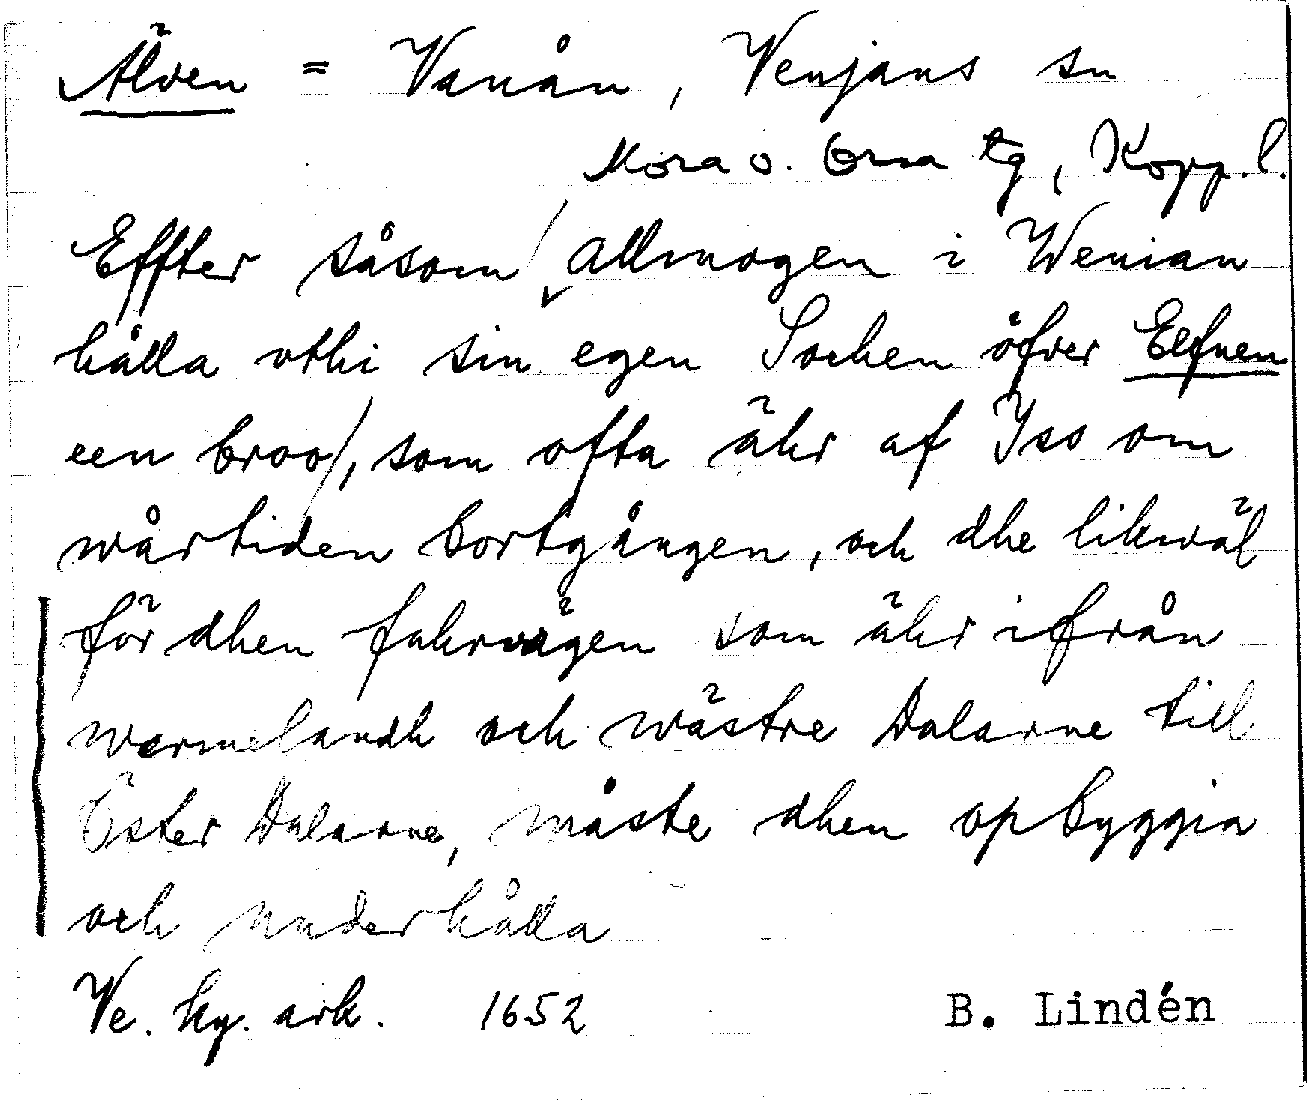 Älven = Vanån, Venjans sn
Mora o. Orsa tg, Kopp. l.
Effter såsom / allmogen i Wenian
hålla vthi sin egen Sochen öfver Elfuen
een broo /, som ofta ähr af Iso om
wårtiden bortgången, och dhe likwäl
för dhen fahrwägen som ähr ifrån
warmelandh och wästre Dalarne till
Öster Dalarne, måste dhen opbyggia
och underhålla
Ve. ky. ark. 1652 B. Lindén